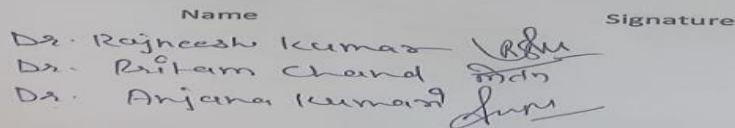 Name Signature
Dr. Rajneesh Kumar
Dr. Pritam Chand
Dr. Anjana Kumari